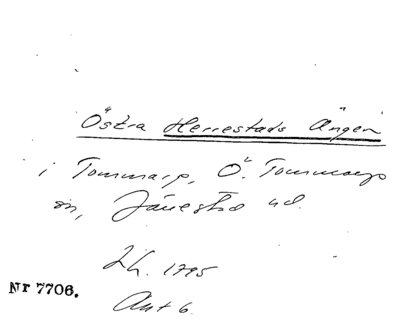 Östra Herrestads Ängen
i Tommarp, Ö. Tommarps
sn, Järrestad hd.
Lh. 1795
Akt 6.
Nr 7706.